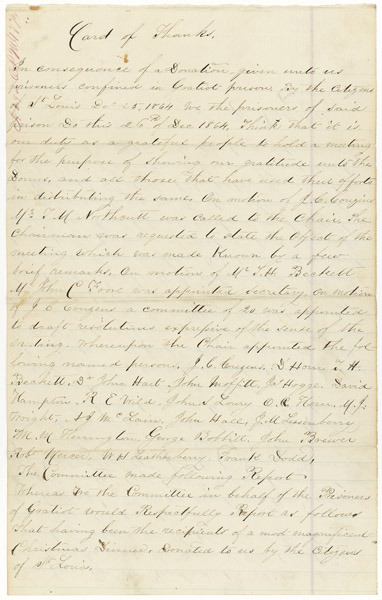 Card of Thanks.
In consequence of a Donation given unto us
prisoners confined in Gratiot prison By the Citizens
St Louis Dec 25, 1864 We the prisoners of said
prison Do this 26th of Dec 1864, Think that it is
our duty as a grateful people to hold a meeting
for the purpose of Shawing our gratitude unto the
Donors, and all those that have used their efforts
in distributing the same. On motion of J. C. Cougins
Mr T M Northcutt was called to the Chair, The
Chairman was requested to state the object of the
meeting Which was made Known by a few
brief remarks. On motions of Mr T. H. Beckett
M John C Foore was appointed Secretary. On motion
of J C Cougens a committee of 20 was appointed
to draft resolutions expressive of the sense of the
meeting. Whereupon the Chair appointed the fol
lowing named persons, J. C. Cougens, D Horn T. H.
Beckett, Dr John Hart, John Moffitt, Jas Hogge, David
Hampton, R E Wild, John S Loury O. R. Horn, M. J.
Wright, A J McClain, John Hall, J. M Lisenberry
M. M Herrington, George Bobbitt, John Brewer
Robt Mercer, W H Leatherberry, Frank Dodd,
The Committee made following Report
Whereas We the Committee in behalf of the Prisoners
of Gratiot would Respectfully Report as follows
That having been the recipients of a most magnificent
Christmas Dinner, Donated to us by the Citizens
of St Louis,